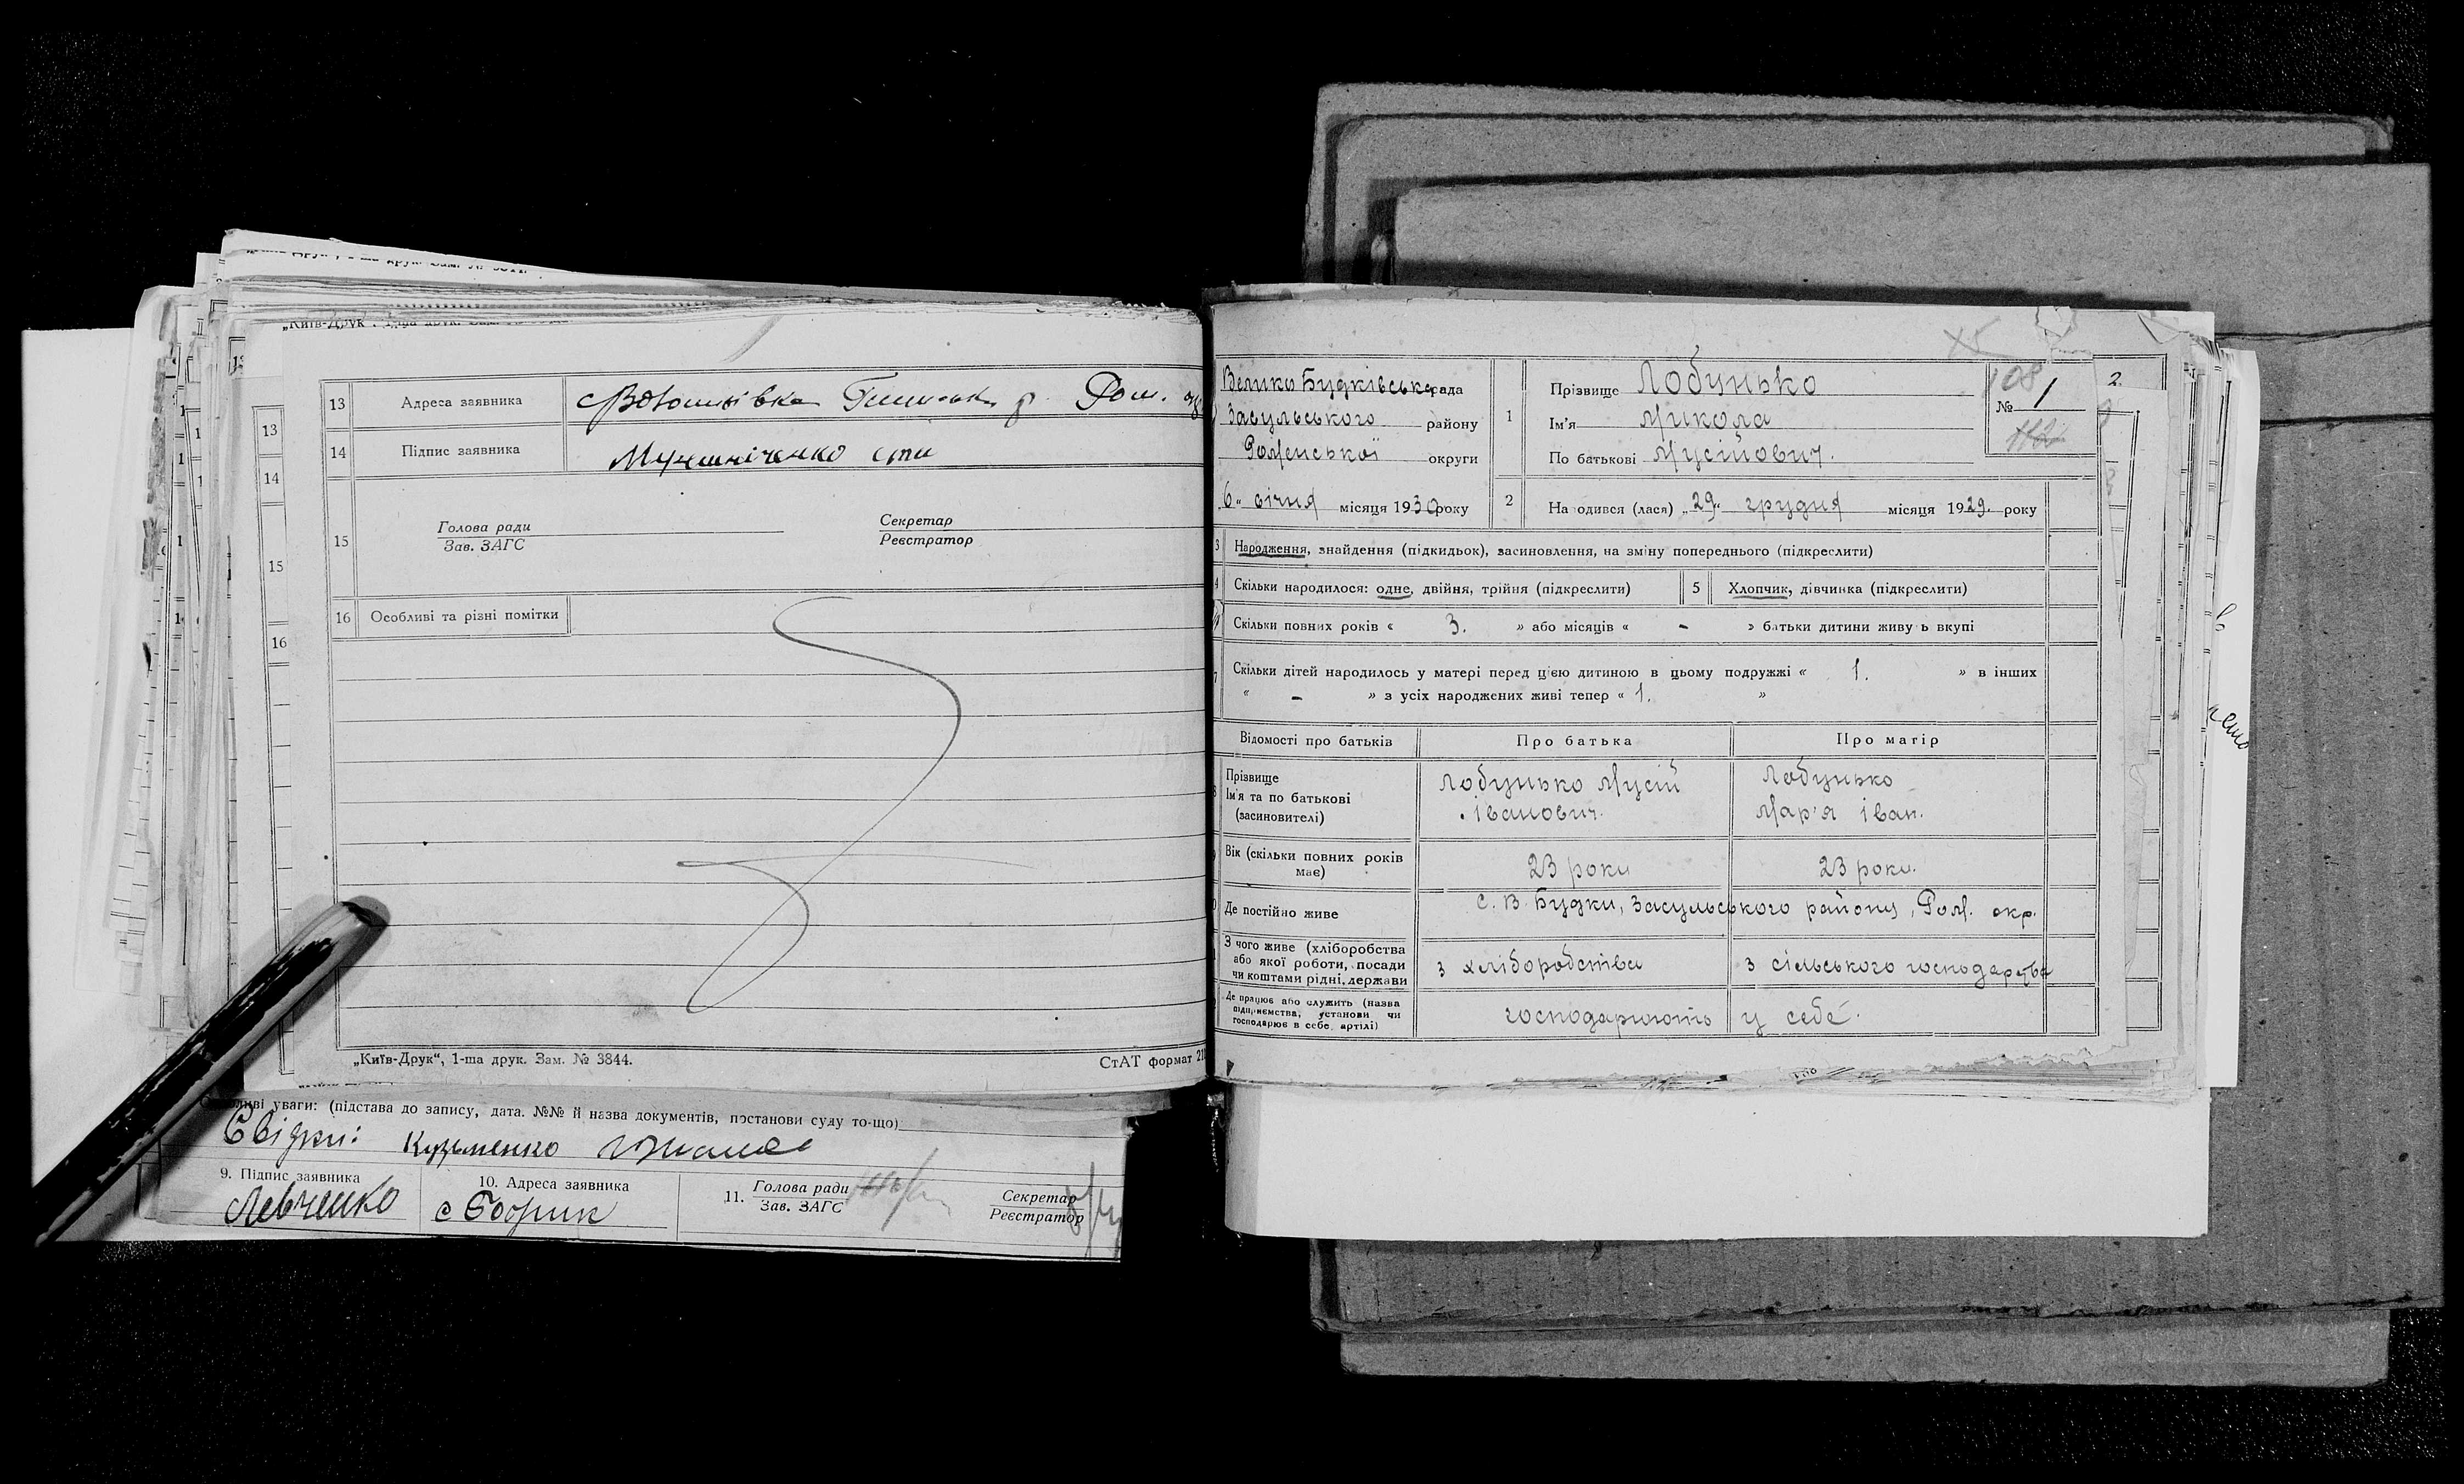 13 Адреса заявника
Ром.
14 Підпис заявника
15 Голова ради Секретар
Зав. ЗАГС Реєстратор
16 Особливі та різні помітки
„Київ-Друк“, 1-ша друк. Зам. № 3844. СтАТ формат
уваги: (підстава до запису, дата. №№ й назва документів, постанови суду то-що)
Свідки: Кузьменко
9. Підпис заявника 10. Адреса заявника 11. Голова ради Секретар
Зав. ЗАГС Реєстратор
Левченко
13
14
15
16
Велико Будківська рада
Засульського району
Роменської округи
6 „ січня місяця 1930 року
1 Прізвище Лобунько
Ім'я Микола
По батькові Мусійович.
108
№ 1
2 На одився (лася) „29„ грудня місяця 1929. року
3 Народження, знайдення (підкидьок), засиновлення, на зміну попереднього (підкреслити)
4 Скільки народилося: одне, двійня, трійня (підкреслити) 5 Хлопчик, дівчинка (підкреслити)
Скільки повних років « 3. » або місяців « - » батьки дитини живу ь вкупі
7 Скільки дітей народилось у матері перед цією дитиною в цьому подружжі « 1. » в інших
« - » з усіх народжених живі тепер « 1. »
Відомості про батьків Про батька Про матір
Прізвище
Ім'я та по батькові
(засиновителі)
Лобунько Мусій
Іванович.
Лобунько
Мар'я Іван.
Вік (скільки повних років має) 23 роки 23 роки.
Де постійно живе с. В. Будки, Засульського району, Ром. окр.
З чого живе (хліборобства
або якої роботи, посади
чи коштами рідні, держави
з хліборобства з сільського господарства
Де працює або служить (назва
підприємства, установи чи
господарює в себе, артілі)
господарюють у себе.
2